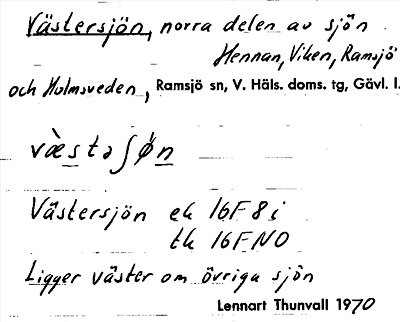 Västersjön, norra delen av sjön
Hennan, Viken, Ramsjö
och Holmsveden, Ramsjö sn, V. Häls. doms. tg, Gävl. l.
væ̀stəʃøn
Västersjön ek 16F 8 i
tk 16F NO
Ligger väster om övriga sjön
Lennart Thunvall 1970